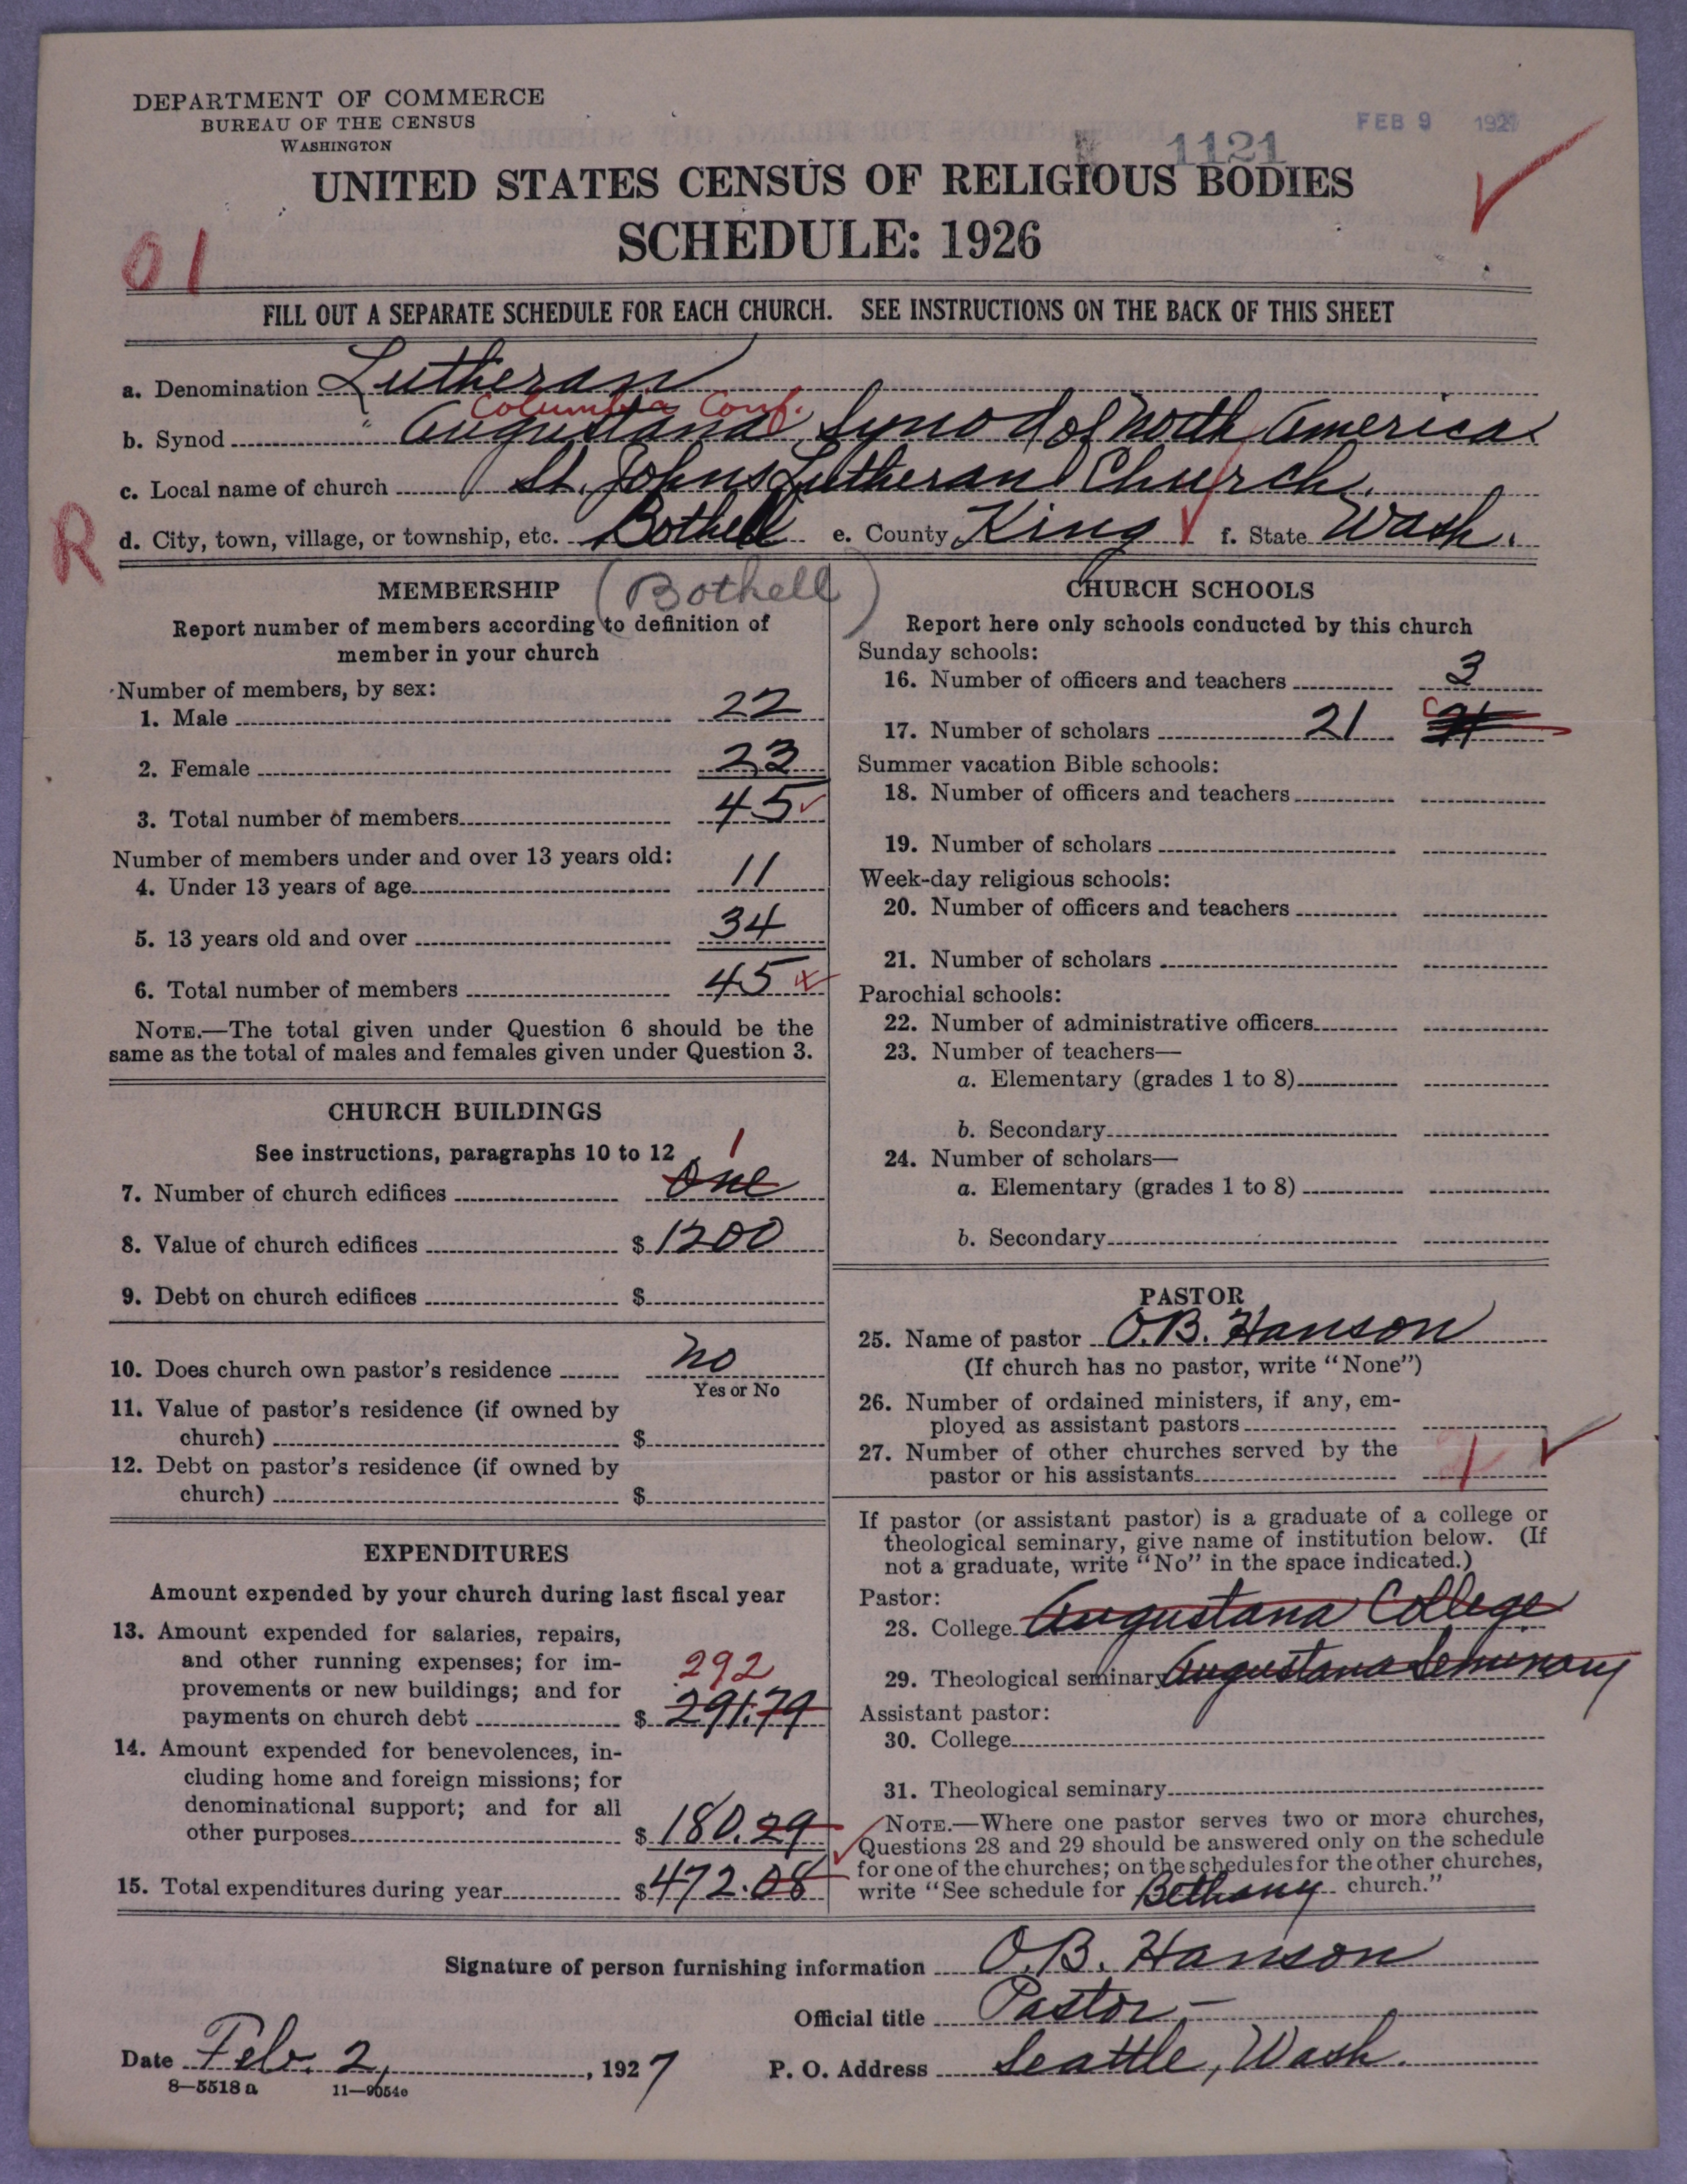 DEPARTMENT OF COMMERCE
BUREAU OF THE CENSUS
WASHINGTON
FEB 9 1927
1121
UNITED STATES CENSUS OF RELIGIOUS BODIES
SCHEDULE: 1926
01
FILL OUT A SEPARATE SCHEDULE FOR EACH CHURCH. SEE INSTRUCTIONS ON THE BACK OF THIS SHEET
a. Denomination Lutheran
Columbia Conf.
b. Synod " Augustana Synod of North America
c. Local name of church St. Johns Lutheran Church.
R
d. City, town, village, or township, etc. Bothell e. County King f. State Wash.
(Bothell)
MEMBERSHIP
Report number of members according to definition of
member in your church
Number of members, by sex:
1. Male 22
2. Female 23
3. Total number of members 45
Number of members under and over 13 years old:
4. Under 13 years of age 11
5. 13 years old and over 34
6. Total number of members 45
NOTE.—The total given under Question 6 should be the
same as the total of males and females given under Question 3.
CHURCH BUILDINGS
See instructions, paragraphs 10 to 12
1
7. Number of church edifices One
8. Value of church edifices $ 1200
9. Debt on church edifices $
10. Does church own pastor's residence no
Yes or No
11. Value of pastor's residence (if owned by
church) $
12. Debt on pastor's residence (if owned by
church) $
EXPENDITURES
Amount expended by your church during last fiscal year
13. Amount expended for salaries, repairs,
and other running expenses; for im-
provements or new buildings; and for
292
payments on church debt $ 291.79
14. Amount expended for benevolences, in-
cluding home and foreign missions; for
denominational support; and for all
other purposes $ 180.29
15. Total expenditures during year $ 472.08
CHURCH SCHOOLS
Report here only schools conducted by this church
Sunday schools:
16. Number of officers and teachers 3
17. Number of scholars 21
Summer vacation Bible schools:
18. Number of officers and teachers
19. Number of scholars
Week-day religious schools:
20. Number of officers and teachers
21. Number of scholars
Parochial schools:
22. Number of administrative officers
23. Number of teachers—
a. Elementary (grades 1 to 8)
b. Secondary
24. Number of scholars—
a. Elementary (grades 1 to 8)
b. Secondary
PASTOR
25. Name of pastor O.B. Hanson
(If church has no pastor, write "None")
26. Number of ordained ministers, if any, em-
ployed as assistant pastors
27. Number of other churches served by the
pastor or his assistants 1
If pastor (or assistant pastor) is a graduate of a college or
theological seminary, give name of institution below. (If
not a graduate, write "No" in the space indicated.)
Pastor:
28. College Augustana College
29. Theological seminary Augustana Seminary
Assistant pastor:
30. College
31. Theological seminary
NOTE.—Where one pastor serves two or more churches,
Questions 28 and 29 should be answered only on the schedule
for one of the churches; on the schedules for the other churches,
write "See schedule for Bethany church."
Signature of person furnishing information O.B. Hanson
Official title Pastor—
Date Feb. 2, 1927 P. O. Address Seattle, Wash.
8—5518 a 11—9054c